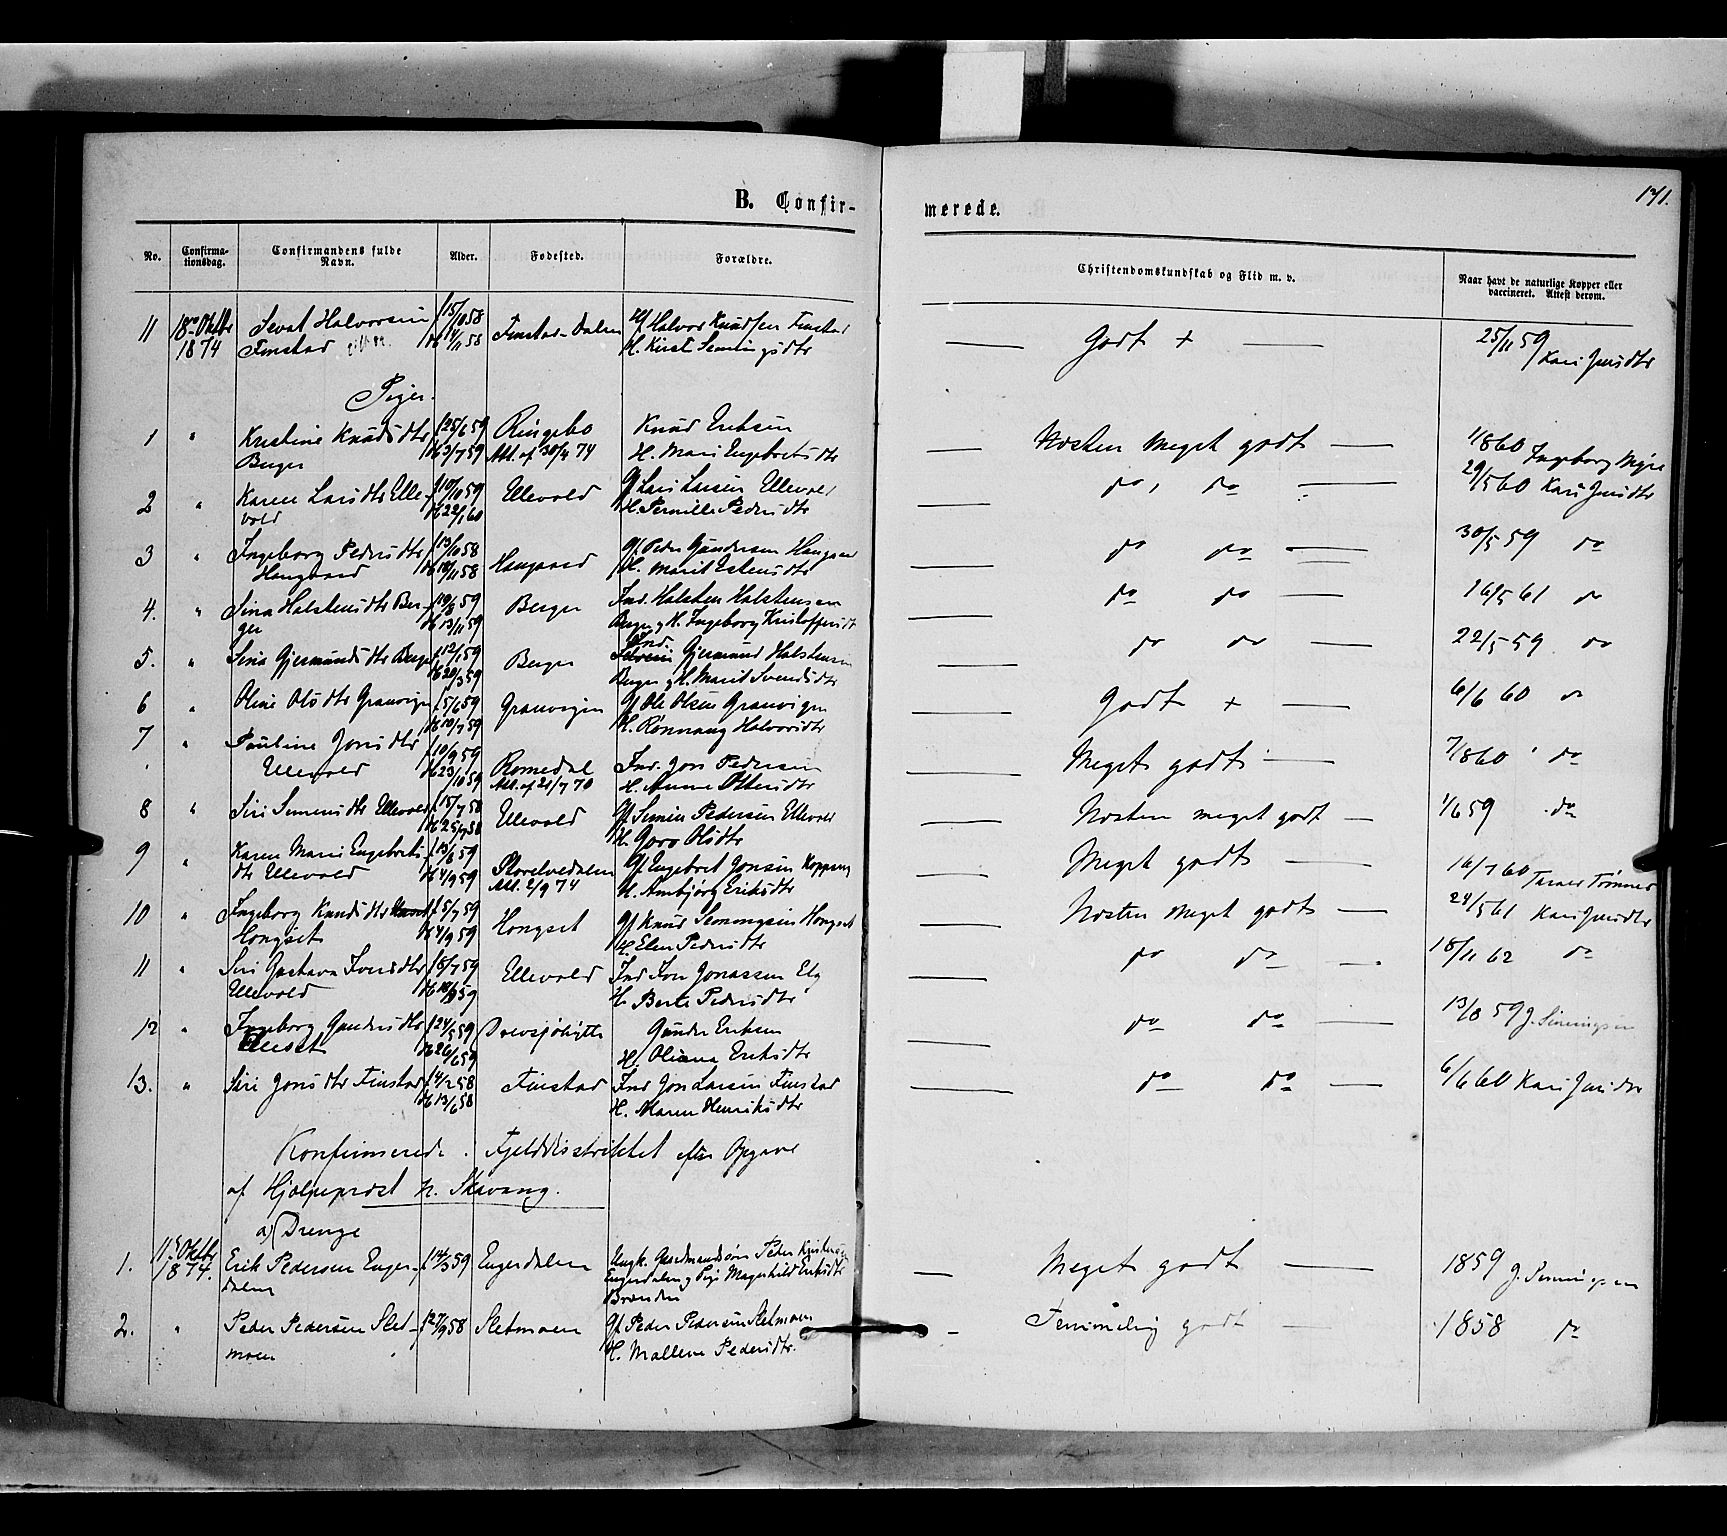 B. Confir-
merede.
171.
No.
Confirma-
tionsdag.
Confirmandens fulde
Navn.
Alder.
Fødested.
Forældre.
Christendomskundskab og Flid m. v.
Naar havt de naturlige Kopper eller
vaccineret. Attest derom.
11 18de Oktbr 1874 Sevat Halvorsen Finstad f 15/10 58 db 14/11 58 Finstad-Dalen Gf Halvor Knudsen Finstad H. Kirst Semingsdtr — Godt + — 25/11 59 Kari Jonsdtr
Piger.
1 " Kristine Knudsdtr Berger f 25/6 59 db 3/7 59 Ringebo Att. af 30/4 74 Knud Eriksen H. Mari Engebretsdtr — Næsten meget godt — 1860 Ingeborg Myre
2 " Karen Larsdtr Ellevold f 10/10 59 db 22/1 60 Ellevold Gf Lars Larsen Ellevold H. Pernille Pedersdtr — do, do — 29/5 60 Kari Jonsdtr
3 " Ingeborg Pedersdtr Haugaard f 13/10 58 db 18/11 58 Haugaard Gf. Peder Gundersen Haugaard H. Marit Estensdtr — do do — 30/5 59 do
4. " Sina Halstensdtr Berger f 19/8 59 db 13/11 59 Berger Ind. Halsten Halstensen Berger og H. Ingeborg Kristoffersdt — do do — 16/5 61 do
5. " Sina Gjermundsdtr Berger f 12/1 59 db 20/3 59 Berger Ind Gjermund Halstensen Berger og H. Marit Svendsdtr — do do — 22/5 59 do
6 " Oline Olsdtr Granvigen f 5/6 59 db 10/7 59 Granvigen Gf Ole Olsen Granvigen H. Rønnaug Halvorsdtr — Godt + — 6/6 60 do
7 " Pauline Jonsdtr Ellevold f 10/9 59 db 23/10 59 Romedal Att. af 21/7 70 Ind. Jon Pedersen H. Anne Ottersdtr — Meget godt — 7/8 60 do
8 " Siri Simensdtr Ellevold f 15/7 58 db 25/7 58 Ellevold Gf Simen Pedersen Ellevold H. Goro Olsdtr — Næsten meget godt — 1/6 59 do
9 " Karen Marie Engebretsdtr Ellevold f 13/6 59 db 4/9 59 Storelvedalen Att. 2/9 74 Gf. Engebret Jonsen Koppang H. Ambjørg Eriksdtr — Meget godt — 16/7 60 Tønner
10 " Ingeborg Knudsdtr Hongset f 5/7 59 db 4/9 59 Hongset Gf Knud Semmingsen Hongset H. Elen Pedersdtr — Næsten meget godt — 24/5 61 Kari Jonsdtr
11 " Siri Gustava Iversdtr Ellevold f 8/7 59 db 18/9 59 Ellevold Ind Jonassen Elg H. Berte Pedersdtr — do do — 18/11 62 do
12 " Ingeborg Gundersdtr f 24/5 59 db 26/6 59 Drevsjøhytte Gunder Eriksen H. Oliana Eriksdtr — do do — 13/8 59 J. Simingsen
13. " Siri Jonsdtr Finstad f 4/2 58 db 13/6 58 Finstad Ind Jon Larsen Finstad H. Maren Henriksdtr — do do — 6/6 60 Kari Jonsdtr
Konfirmerede i Fjelddistriktet efter Opgave
af Hjælpeprest N. Skavang.
a) Drenge
1. 11te Oktbr 1874. Erik Pedersen Engerdalen f 14/3 59 Engerdalen Ungk. Gaardmandssøn Peder Engerdalen og Pige Magnhild Eriksdtr Brænden — Meget godt — 1859 J. Semmingsen
2. " Peder Pedersen Sletmoen f 27/9 58 Sletmoen Gf Peder Pedersen Sletmoen H. Mallene Pedersdtr. — Temmelig godt — 1858 do